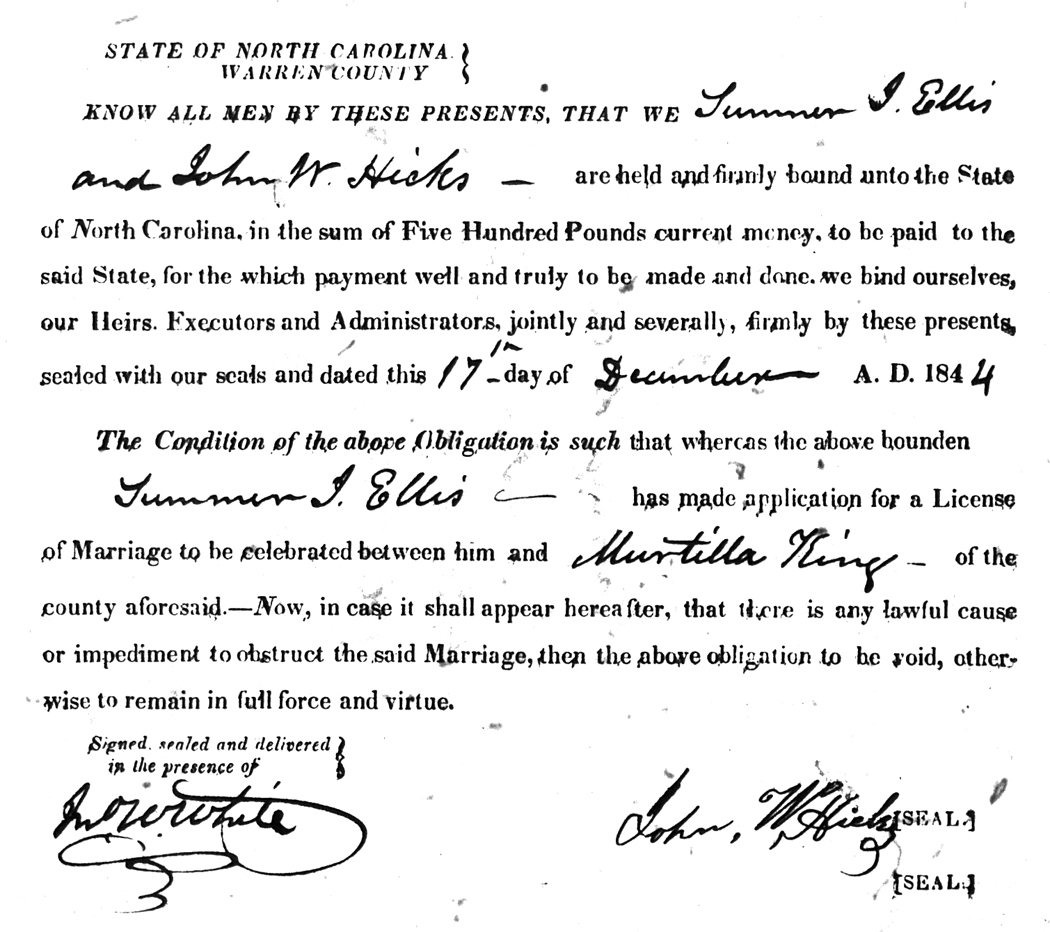 STATE OF NORTH CAROLINA
WARREN COUNTY
KNOW ALL MEN BY THESE PRESENTS, THAT WE Summer I. Ellis
and John W. Hicks — are held and firmly bound unto the State
of North Carolina, in the sum of Five Hundred Pounds current money, to be paid to the
said State, for the which payment well and truly to be made and done. we bind ourselves,
our Heirs. Executors and Administrators, jointly and severally, firmly by these presents,
sealed with our seals and dated this 17th day of December A. D. 1844
The Condition of the above Obligation is such that whereas the above bounden
Summer I. Ellis — has made application for a License
of Marriage to be celebrated between him and Murtilla King — of the
county aforesaid.—Now, in case it shall appear hereafter, that there is any lawful cause
or impediment to obstruct the said Marriage, then the above obligation to be void, other-
wise to remain in full force and virtue.
Signed, sealed and delivered
in the presence of
Jno W. White
John, W, Hicks [SEAL.]
[SEAL.]